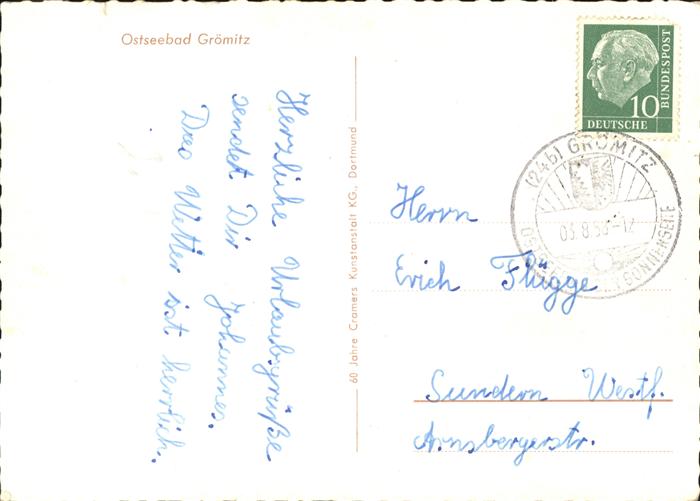 Ostseebad Grömitz
Herzliche Urlaubsgrüße
sendet Dir Johannes.
Das Wetter ist herrlich.
60 Jahre Cramers Kunstanstalt KG., Dortmund
10
DEUTSCHE
BUNDESPOST
(24b) GRÖMITZ
SONNENSEITE
Herrn
Erich Flügge
Sundern Westf.
Arnsbergerstr.